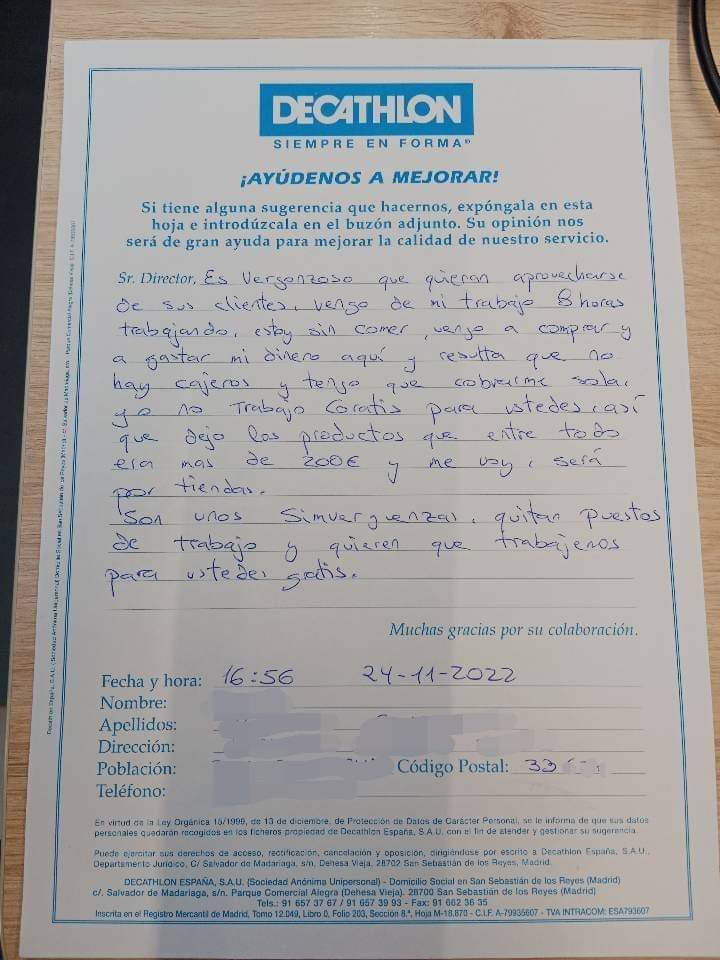 DECATHLON
SIEMPRE EN FORMA®
¡AYÚDENOS A MEJORAR!
Si tiene alguna sugerencia que hacernos, expóngala en esta
hoja e introdúzcala en el buzón adjunto. Su opinión nos
será de gran ayuda para mejorar la calidad de nuestro servicio.
Sr. Director, Es Vergonzoso que quieran aprovecharse
de sus clientes, vengo de mi trabajo 8 horas
trabajando, estoy sin comer, vengo a comprar y
a gastar mi dinero aquí y resulta que no
hay cajeros y tengo que cobrarme sola,
yo no Trabajo Gratis para ustedes, así
que dejo los productos que entre todo
era mas de 200€ y me voy, será
por tiendas.
Son unos Sinverguenzas, quitan puestos
de trabajo y quieren que trabajemos
para ustedes gratis.
Muchas gracias por su colaboración.
Fecha y hora: 16:56 24-11-2022
Nombre:
Apellidos:
Dirección:
Población: Código Postal: 33
Teléfono:
En virtud de la Ley Orgánica 15/1999, de 13 de diciembre, de Protección de Datos de Carácter Personal, se le informa de que sus datos
personales quedarán recogidos en los ficheros propiedad de Decathlon España, S.A.U. con el fin de atender y gestionar su sugerencia.
Puede ejercitar sus derechos de acceso, rectificación, cancelación y oposición, dirigiéndose por escrito a Decathlon España, S.A.U.,
Departamento Jurídico, C/ Salvador de Madariaga, s/n, Dehesa Vieja, 28702 San Sebastián de los Reyes, Madrid.
DECATHLON ESPAÑA, S.A.U. (Sociedad Anónima Unipersonal) - Domicilio Social en San Sebastián de los Reyes (Madrid)
c/. Salvador de Madariaga, s/n. Parque Comercial Alegra (Dehesa Vieja). 28700 San Sebastián de los Reyes (Madrid)
Tels.: 91 657 37 67 / 91 657 39 93 - Fax: 91 662 36 35
Inscrita en el Registro Mercantil de Madrid, Tomo 12.049, Libro 0, Folio 203, Sección 8.ª, Hoja M-18.870 - C.I.F. A-79935607 - TVA INTRACOM: ESA793607